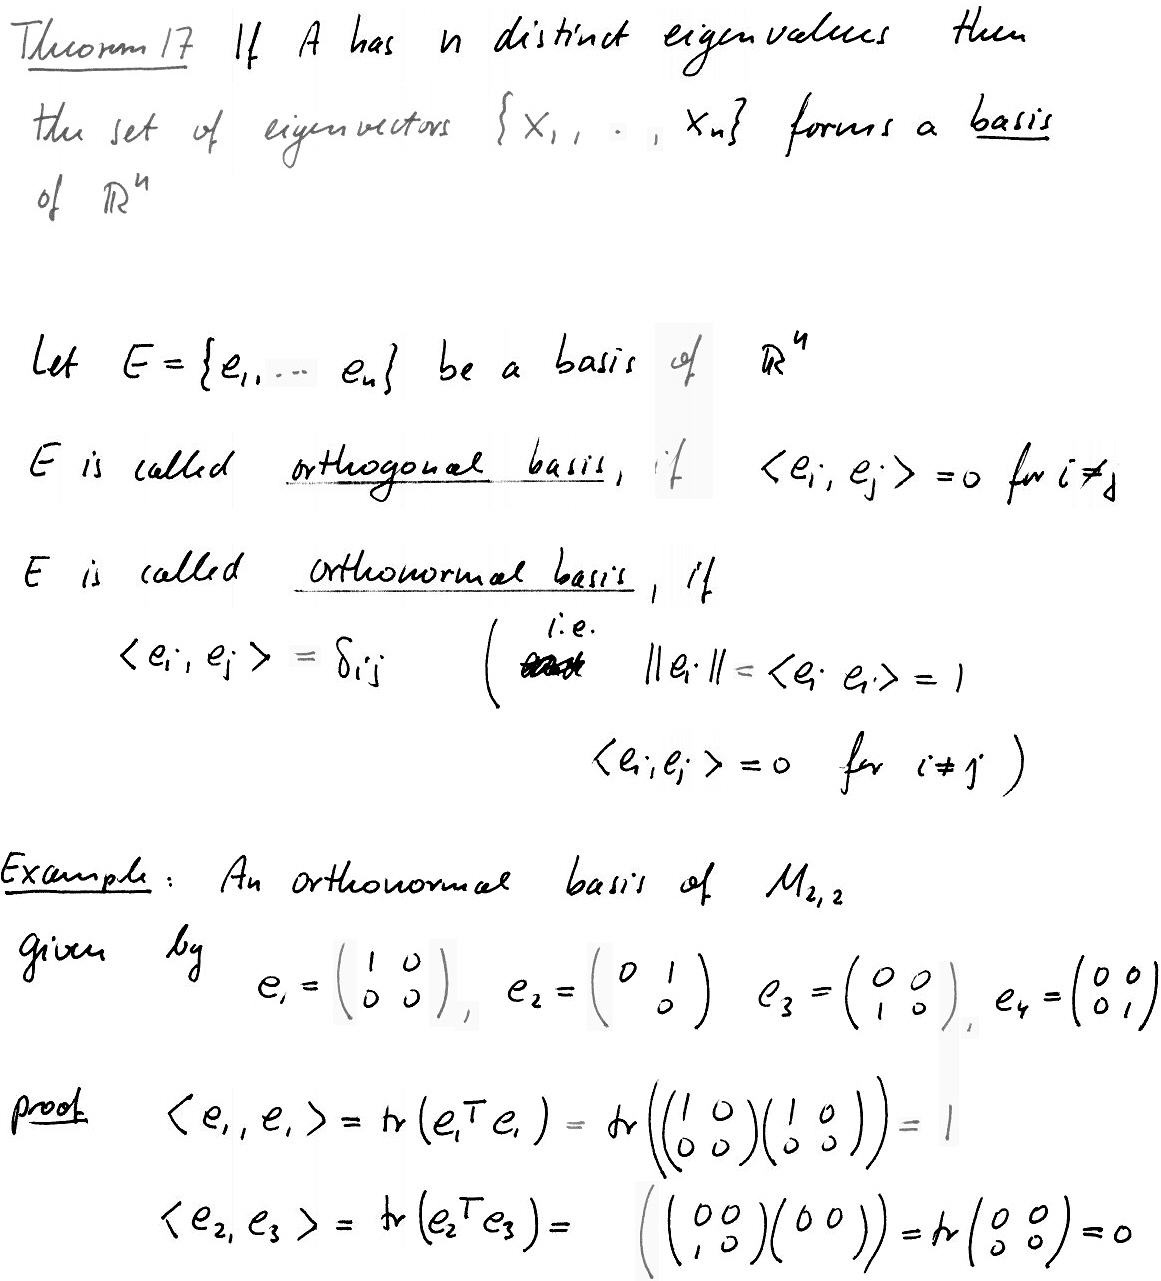 Theorem 17 If A has n distinct eigenvalues then
the set of eigenvectors {x₁, . , xₙ} forms a basis
of ℝⁿ
Let E = {e₁, ... eₙ} be a basis of ℝⁿ
E is called orthogonal basis, if <eᵢ, eⱼ> = 0 for i ≠ j
E is called orthonormal basis, if
<eᵢ, eⱼ> = δᵢⱼ ( i.e. ||eᵢ|| = <eᵢ eᵢ> = 1
<eᵢ, eⱼ> = 0 for i ≠ j )
Example: An orthonormal basis of M₂,₂
given by e₁ = (1 0; 0 0), e₂ = (0 1; 0) e₃ = (0 0; 1 0), e₄ = (0 0; 0 1)
proof <e₁, e₁> = tr(e₁ᵀ e₁) = tr((1 0; 0 0)(1 0; 0 0)) = 1
<e₂, e₃> = tr(e₂ᵀ e₃) = ((0 0; 1 0)(0 0)) = tr(0 0; 0 0) = 0